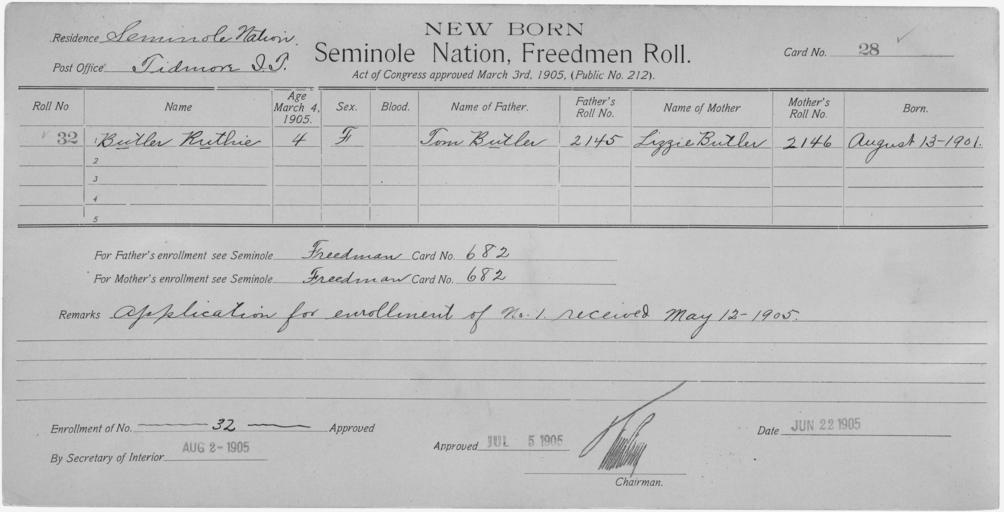 NEW BORN
Residence Seminole Nation.
Seminole Nation, Freedmen Roll.
Card No. 28
Post Office Tidmore I.T.
Act of Congress approved March 3rd, 1905, (Public No. 212).
Roll No Name Age March 4, 1905. Sex. Blood. Name of Father. Father's Roll No. Name of Mother Mother's Roll No. Born.
32 1 Butler Ruthie 4 F Tom Butler 2145 Lizzie Butler 2146 August 13-1901.
2
3
4
5
For Father's enrollment see Seminole Freedman Card No. 682
For Mother's enrollment see Seminole Freedman Card No. 682
Remarks Application for enrollment of No. 1 received May 12-1905.
Enrollment of No. 32 Approved
By Secretary of Interior AUG 2-1905
Approved JUL 5 1905
Chairman.
Date JUN 22 1905